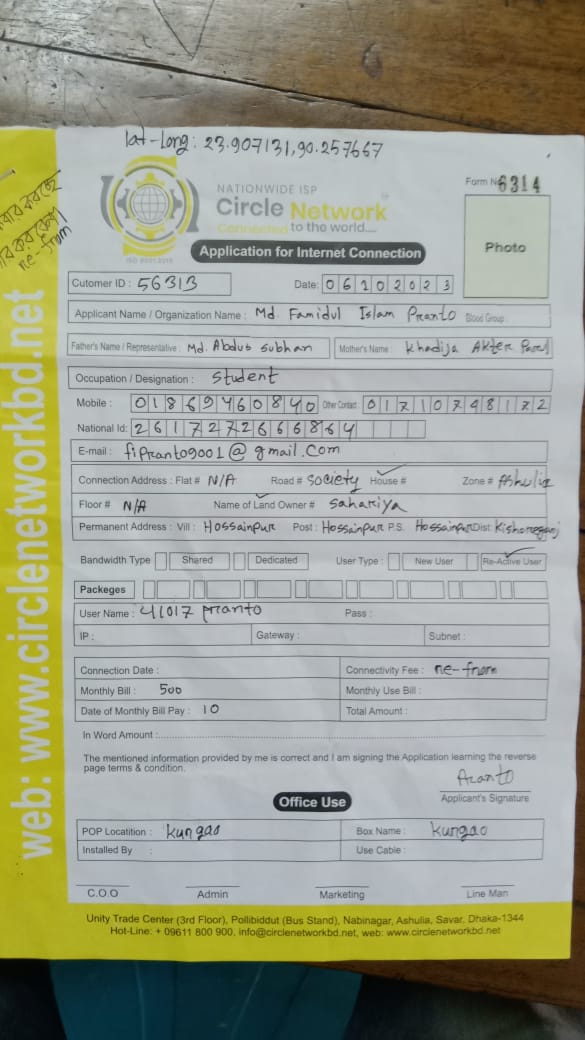 lat-long: 23.907131,90.257667
NATIONWIDE ISP
Circle Network
Connected to the world....
ISO 9001:2015
Form No 6314
Photo
Application for Internet Connection
Cutomer ID : 56313
Date: 06102023
Applicant Name / Organization Name : Md. Famidul Islam Pranto Blood Group:
Father's Name / Representative : Md. Abdus Subhan Mother's Name : Khadija Akter
Occupation / Designation : Student
Mobile : 01869460840 Other Contact : 01710748172
National Id: 2617272666864
E-mail : fipranto9001@gmail.com
Connection Address : Flat # N/A Road # Society House # Zone # Ashulia
Floor # N/A Name of Land Owner # Sahariya
Permanent Address : Vill : Hossainpur Post : Hossainpur P.S. Hossainpur Dist: Kishoreganj
Bandwidth Type Shared Dedicated User Type : New User Re-Active User
Packeges
User Name : 41017 pranto Pass :
IP : Gateway : Subnet :
Connection Date : Connectivity Fee : re-from
Monthly Bill : 500 Monthly Use Bill :
Date of Monthly Bill Pay : 10 Total Amount :
In Word Amount :
The mentioned information provided by me is correct and I am signing the Application learning the reverse
page terms & condition.
Pranto
Applicant's Signature
Office Use
POP Locatition : kungao Box Name : kungao
Installed By : Use Cable :
C.O.O Admin Marketing Line Man
Unity Trade Center (3rd Floor), Pollibiddut (Bus Stand), Nabinagar, Ashulia, Savar, Dhaka-1344
Hot-Line: + 09611 800 900, info@circlenetworkbd.net, web: www.circlenetworkbd.net
web: www.circlenetworkbd.net
re-from